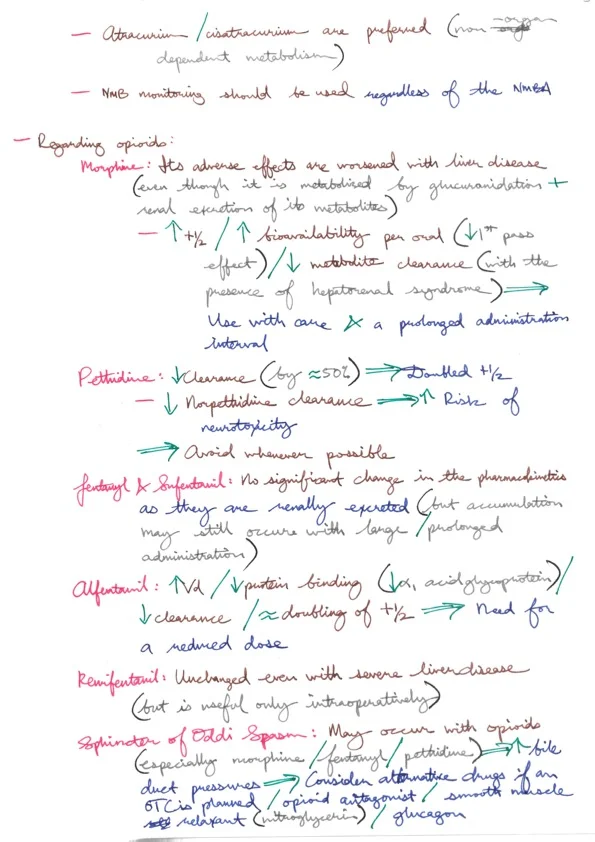 — Atracurium / cisatracurium are preferred (non organ
dependent metabolism)
— NMB monitoring should be used regardless of the NMBA
— Regarding opioids:
Morphine: Its adverse effects are worsened with liver disease
(even though it is metabolized by glucuranidation +
renal excretion of its metabolites)
— ↑ t1/2 / ↑ bioavailability per oral (↓ 1st pass
effect) / ↓ metabolite clearance (with the
presence of hepatorenal syndrome) ⟹
Use with care & a prolonged administration
interval
Pethidine: ↓ Clearance (by ≈ 50%) ⟹ Doubled t1/2
— ↓ Norpethidine clearance ⟹ ↑ Risk of
neurotoxicity
⟹ Avoid whenever possible
Fentanyl & Sufentanil: No significant change in the pharmacokinetics
as they are renally excreted (but accumulation
may still occure with large / prolonged
administration)
Alfentanil: ↑ Vd / ↓ protein binding (↓ α1 acid glycoprotein) /
↓ clearance / ≈ doubling of t1/2 ⟹ Need for
a reduced dose
Remifentanil: Unchanged even with severe liver disease
(but is useful only intraoperatively)
Sphincter of Oddi Spasm: May occur with opioids
(especially morphine / fentanyl / pethidine) ⟹ ↑ bile
duct pressures ⟹ Consider alternative drugs if an
OTC is planned / opioid antagonist / smooth muscle
relaxant (nitroglycerin) / glucagon